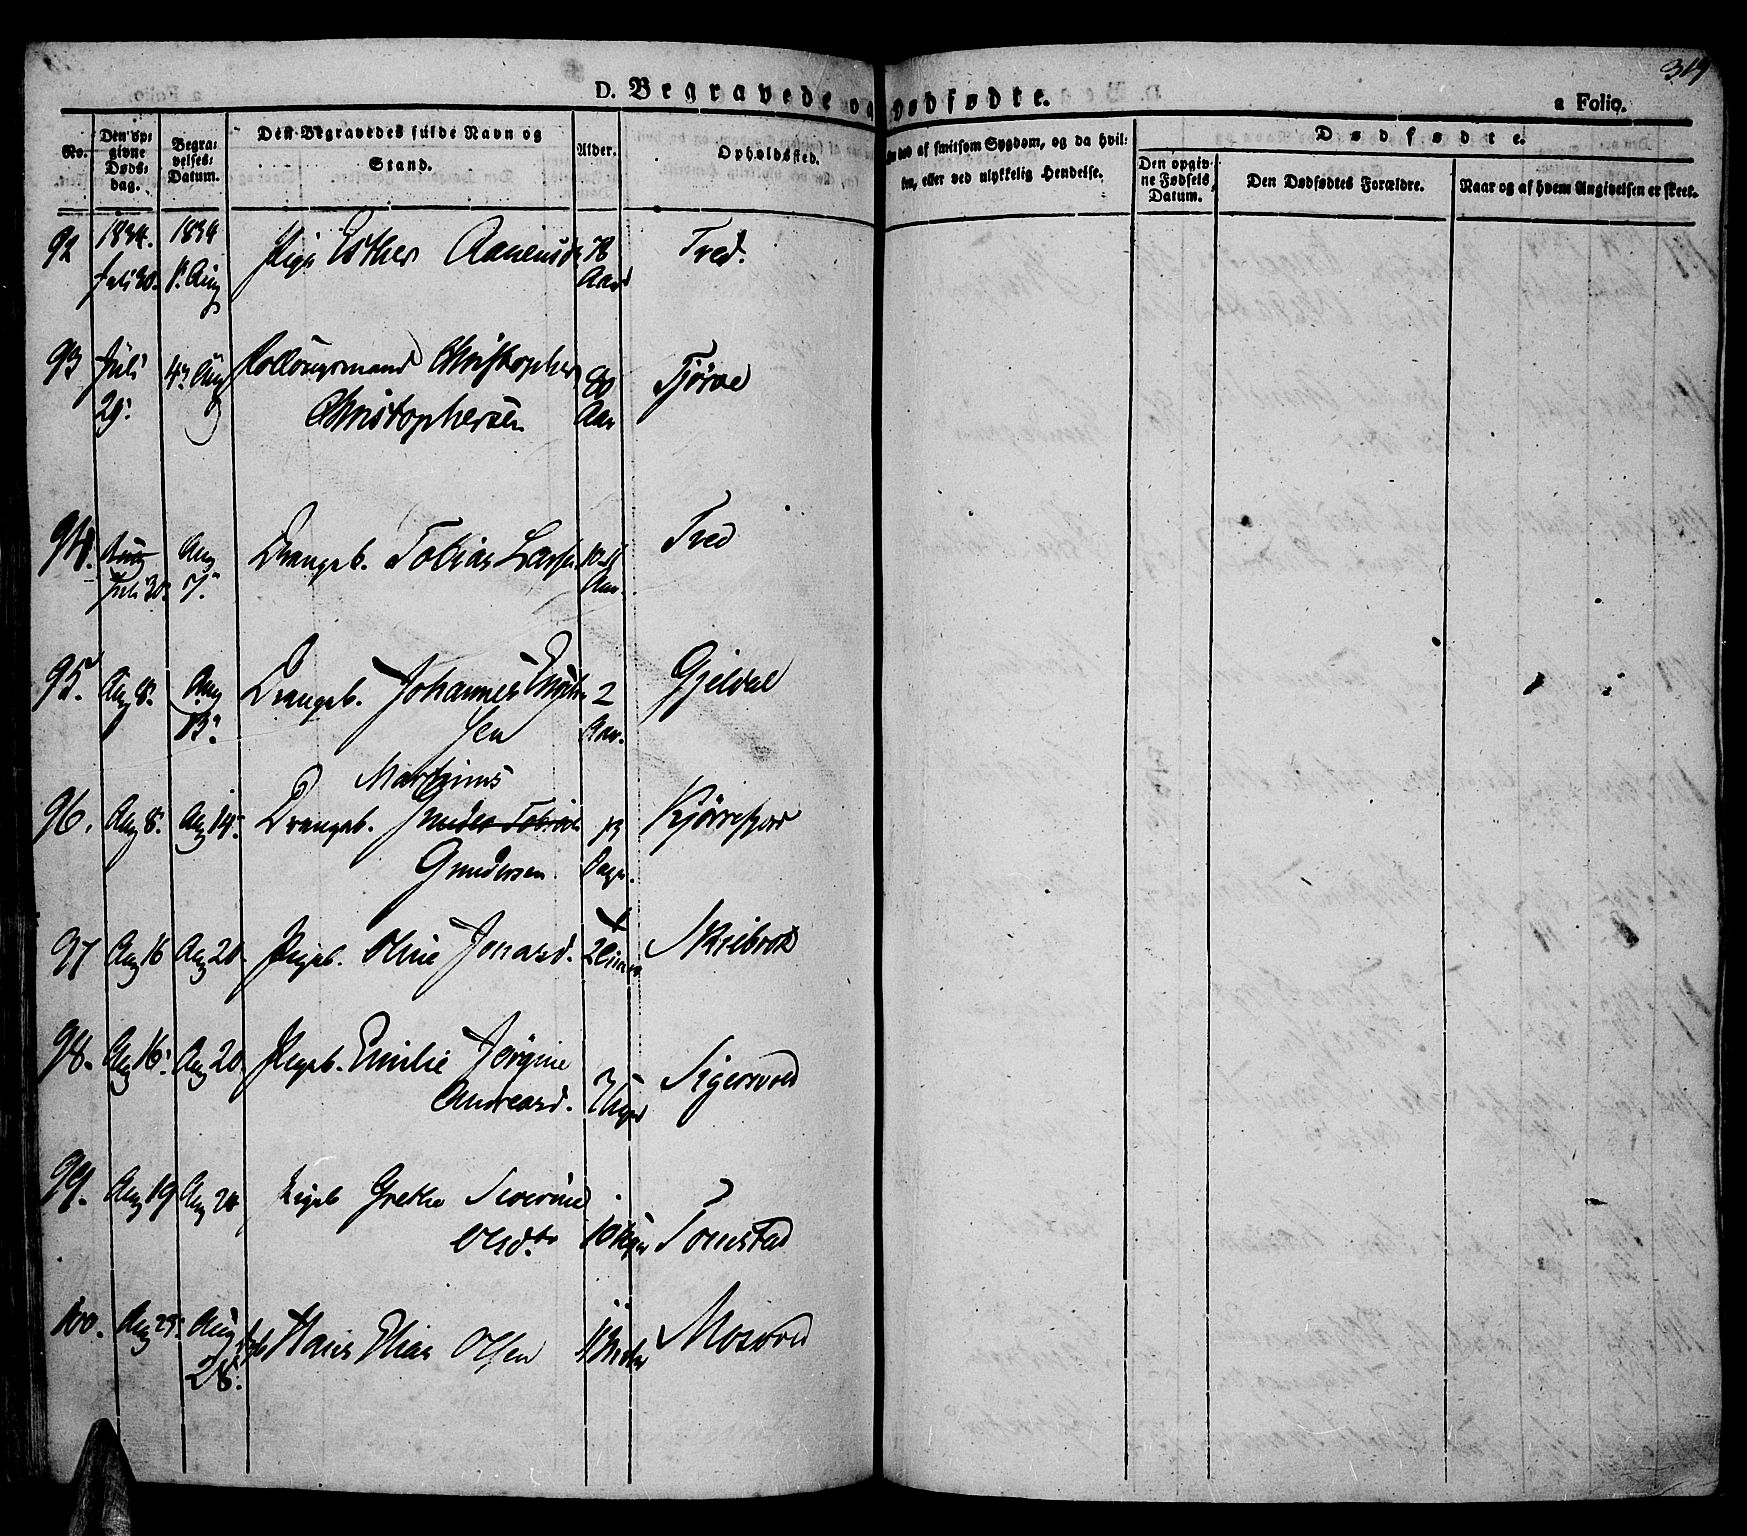 319
D. Begravede og Dødfødte.
a Folio.
No.
Den opgivne Dødsdag.
Begravelses-Datum.
Den Begravedes fulde Navn og Stand.
Alder.
Opholdssted.
død af smitsom Sygdom, og da hvilken, eller ved ulykkelig Hendelse.
Dødfødte.
Den opgivne Fødsels Datum.
Den Dødfødtes Forældre.
Naar og af hvem Angivelsen er skeet.
92 1834. Juli 30. 1834 1. Aug Pige Esther Aanensd 78 Aar Tved.
93 Juli 29. 4. Aug Christopher Christophersen 80 Aar Tjørve
94. Aug Juli 30. Aug 7. Drengeb. Tobias Lassen Aar. Tved
95. Aug 8. Aug 13. Drengeb. Johannes sen 2 Aar. Gjelval
96. Aug 8. Aug 14. Drengeb. Martinius Gundersen 13 Dage.
97 Aug 16 Aug 20. Pigeb. Oline Jonasd. 2 Skeibrok
98. Aug 16. Aug 20. Pigeb. Emilie Jørgine Andreasd. 7 Uger Sigersvold
99. Aug 19 Aug 20 Pigeb Grethe Severine Olsd.tr 10 Uger Tomstad
100. Aug 23. Aug 28. Hans Elias Olsen Mosvold